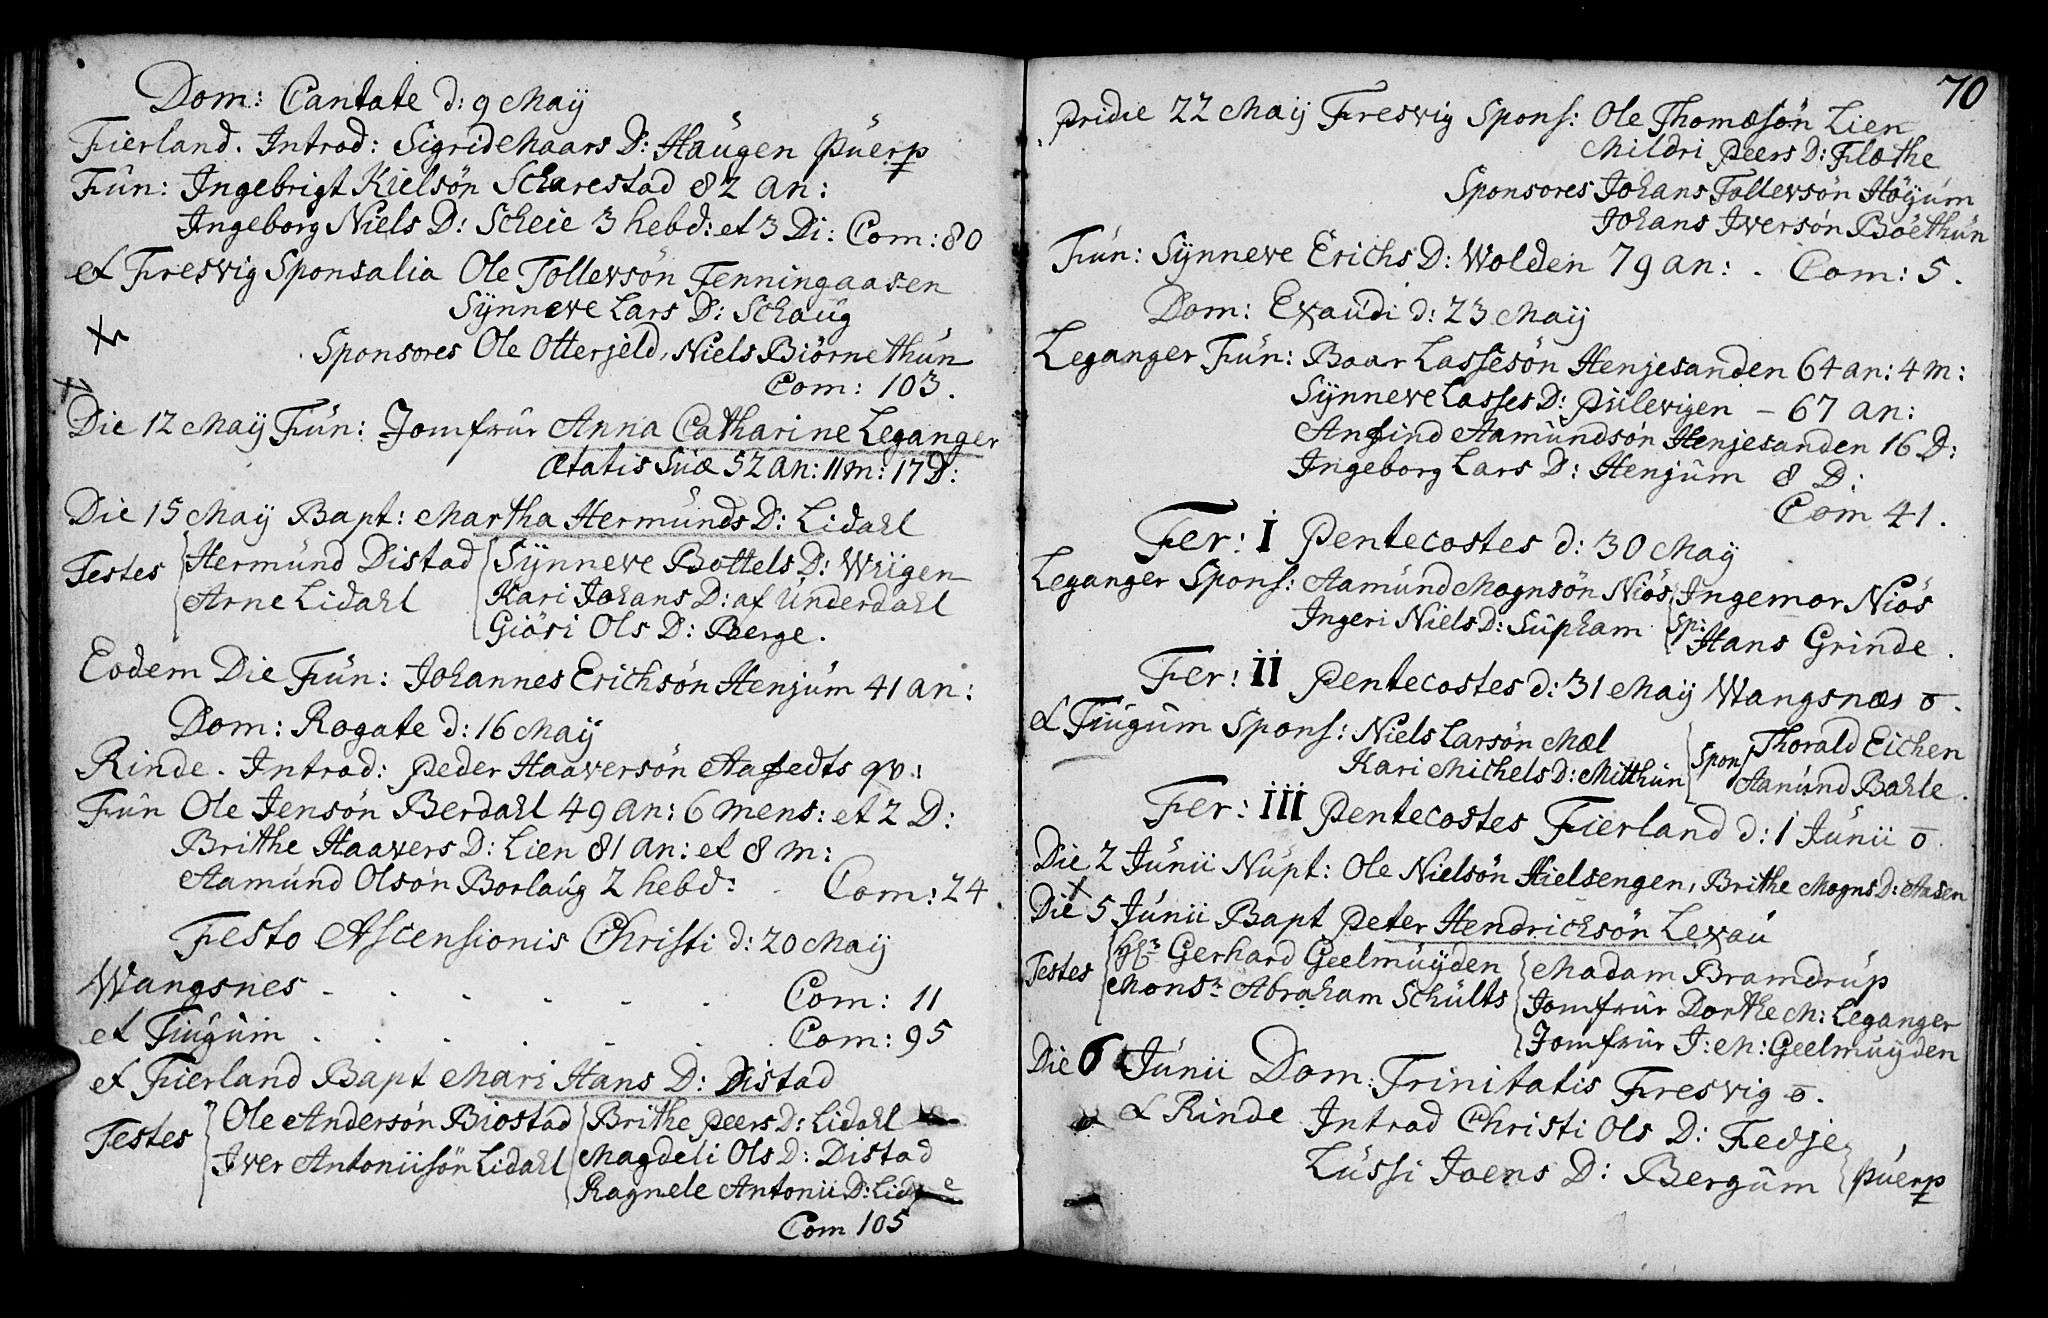 Dom: Cantate d: 9 May
Fierland. Introd: Sigrid Maars D: Haugen Puerp
Fun: Ingebrigt Kielsön Scharestad 82 an:
Ingeborg Niels D: Scheie 3 hebd: et 3 Di: Com: 80
et Fresvig Sponsalia Ole Tollevsön Fenningaasen
Synneve Lars D: Schaug
Sponsores Ole Otterjeld, Niels Biörnethun
Com: 103.
Die 12 May Fun: Jomfrur Anna Catharine Leganger
Ætatis Suæ 52 an: 11 m: 17 D:
Die 15 May Bapt: Martha Hermunds D: Lidahl
Testes Hermund Distad Synneve Bottels D: Wiigen
Arne Lidahl Kari Johans D: af Underdahl
Giösi Ols D: Berge.
Eodem Die Fun: Johannes Erichsön Henjum 41 an:
Dom: Rogate d: 16 May
Rinde. Introd: Peder Haaversön Aafedts qv:
Fun Ole Jensön Berdahl 49 an: 6 mens: et 2 D:
Brithe Haavers D: Lien 81 an: et 8 m:
Aamund Olsön Borlaug 2 hebd: . Com: 24
Festo Ascensionis Christi d: 20 May
Wangsnes - . . . . . Com: 11
et Fiugum . . . . . . Com: 95
et Fierland Bapt Mari Hans D: Distad
Testes Ole Andersön Biostad Brithe Peers D: Lidahl
Iver Antoniisön Lidahl Magdeli Ols D: Distad
Ragnele Antonii D:
Com 105
70
Pridie 22 May Fresvig Spons: Ole Thomæsön Lien
Mildri Peers D: Flothe
Sponsores Johans Tollevsön Höyum
Johans Iversön Böethun
Fun: Synneve Erichs D: Wolden 79 an: . Com: 5.
Dom: Exaudi d: 23 May
Leganger Fun: Baar Lassesön Henjesanden 64 an: 4 m:
Synneve Lasses D: Pilevigen - 67 an:
Anfind Aamundsön Henjesanden 16 D:
Ingeborg Lars D: Henjum 8 D:
Com 41.
Fer: I Pentecostes d: 30 May
Leganger Spons: Aamund Mognsön Niös Ingemor Niös
Ingeri Niels D: Supham Sp: Hans Grinde.
Fer: II Pentecostes d: 31 May Wangsnæs o.
et Fiugum Spons: Niels Larsön Mæl Spon Thorald Eichen
Kari Michels D: Mitthun Aamund Bahle.
Fer: III Pentecostes Fierland d: 1 Junii o
Die 2 Junii Nupt: Ole Nielsön Hielsengen, Brithe Mogns D: Aasen
Die 5 Junii Bapt Peter Hendrichsön Lexau
Testes Hr Gerhard Geelmuyden Madam Bramdrup
Monsr Abraham Schults Jomfrur Dorthe M: Leganger
Jomfrur J: M: Geelmuyden
Die 6 Junii Dom: Trinitatis Fresvig o.
et Rinde Introd Christi Ols D: Fedje
Lussi Joens D: Bergum Puerp